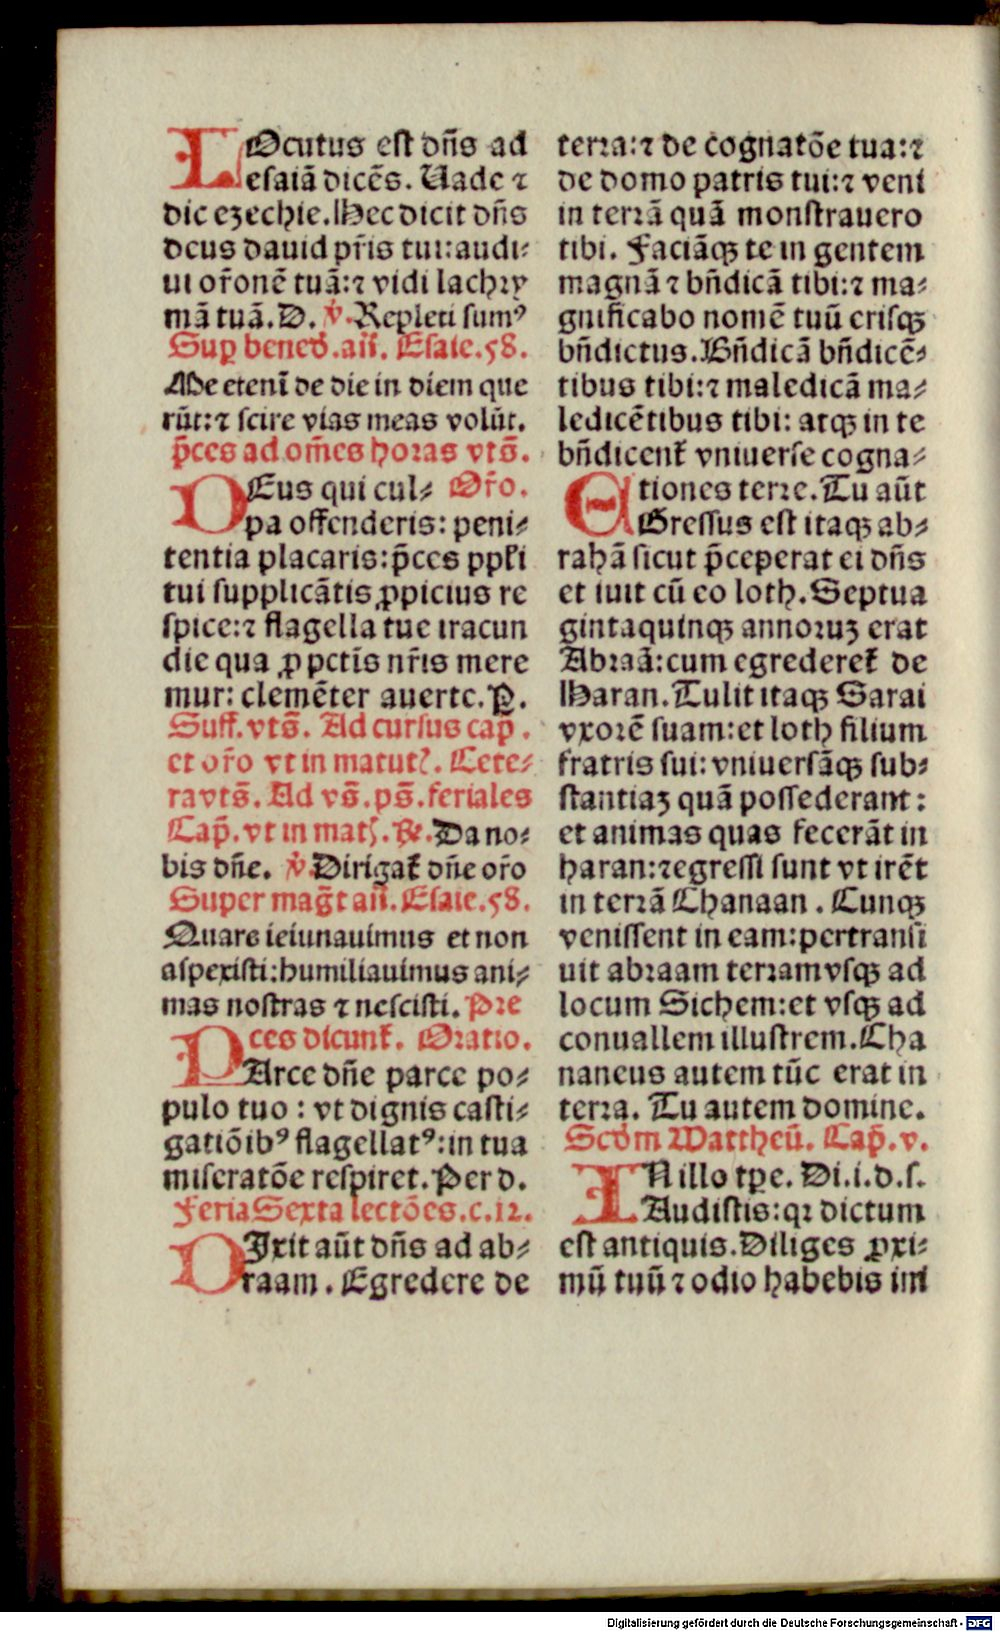 LOcutus est dñs ad
esaiã dicẽs. Uade ⁊
dic ezechie. Hec dicit dñs
deus dauid pr̃is tui: audi⸗
ui or̃onẽ tuã: ⁊ vidi lachry
mã tuã. D. ℣. Repleti sumꝰ
Suꝑ bened̃. añ. Esaie. 58.
Me etenĩ de die in diem que
rũt: ⁊ scire vias meas volũt.
p̃ces ad om̃es horas vts̃.
DEus qui cul⸗ Or̃o.
pa offenderis: peni⸗
tentia placaris: p̃ces ppl̃i
tui supplicãtis ꝓpicius re
spice: ⁊ flagella tue iracun
die qua ꝓ pctĩs nr̃is mere
mur: clemẽter auerte. P̲.
Suff. vts̃. Ad cursus cap̃.
et or̃o vt in matut᷑. Cete⸗
ra vts̃. Ad vs̃. ps̃. feriales
Cap̃. vt in mat᷑. ℟. Da no⸗
bis dñe. ℣. Dirigat᷑ dñe or̃o
Super mag̃t añ. Esaie. 58.
Quare ieiunauimus et non
aspexisti: humiliauimus ani⸗
mas nostras ⁊ nescisti. Pre
ces dicunt᷑. Oratio.
PArce dñe parce po⸗
pulo tuo: vt dignis casti⸗
gatiõibꝰ flagellatꝰ: in tua
miseratõe respiret. Per d.
Feria Sexta lectões. c. 12.
DIxit aũt dñs ad ab⸗
raam. Egredere de
terra: ⁊ de cognatõe tua: ⁊
de domo patris tui: ⁊ veni
in terrã quã monstrauero
tibi. Faciãqꝫ te in gentem
magnã ⁊ bñdicã tibi: ⁊ ma⸗
gnificabo nomẽ tuũ erisqꝫ
bñdictus. Bñdicã bñdicẽ⸗
tibus tibi: ⁊ maledicã ma⸗
ledicẽtibus tibi: atqꝫ in te
bñdicent᷑ vniuerse cogna⸗
tiones terre. Tu aũt
EGressus est itaqꝫ ab⸗
rahã sicut p̃ceperat ei dñs
et iuit cũ eo loth. Septua
gintaquinqꝫ annoruꝫ erat
Abraã: cum egrederet᷑ de
Haran. Tulit itaqꝫ Sarai
vxorẽ suam: et loth filium
fratris sui: vniuersãqꝫ sub⸗
stantiaꝫ quã possederant:
et animas quas fecerãt in
haran: ⁊ egressi sunt vt irẽt
in terrã Chanaan. Cunqꝫ
venissent in eam: pertransi
uit abraam terram vsqꝫ ad
locum Sichem: et vsqꝫ ad
conuallem illustrem. Cha
naneus autem tũc erat in
terra. Tu autem domine.
Scd̃m Mattheũ. Cap̃. v.
IN illo tꝑe. Di. i. d. s.
Audistis: qꝛ dictum
est antiquis. Diliges ꝓxi⸗
mũ tuũ ⁊ odio habebis ini
Digitalisierung gefördert durch die Deutsche Forschungsgemeinschaft - DFG